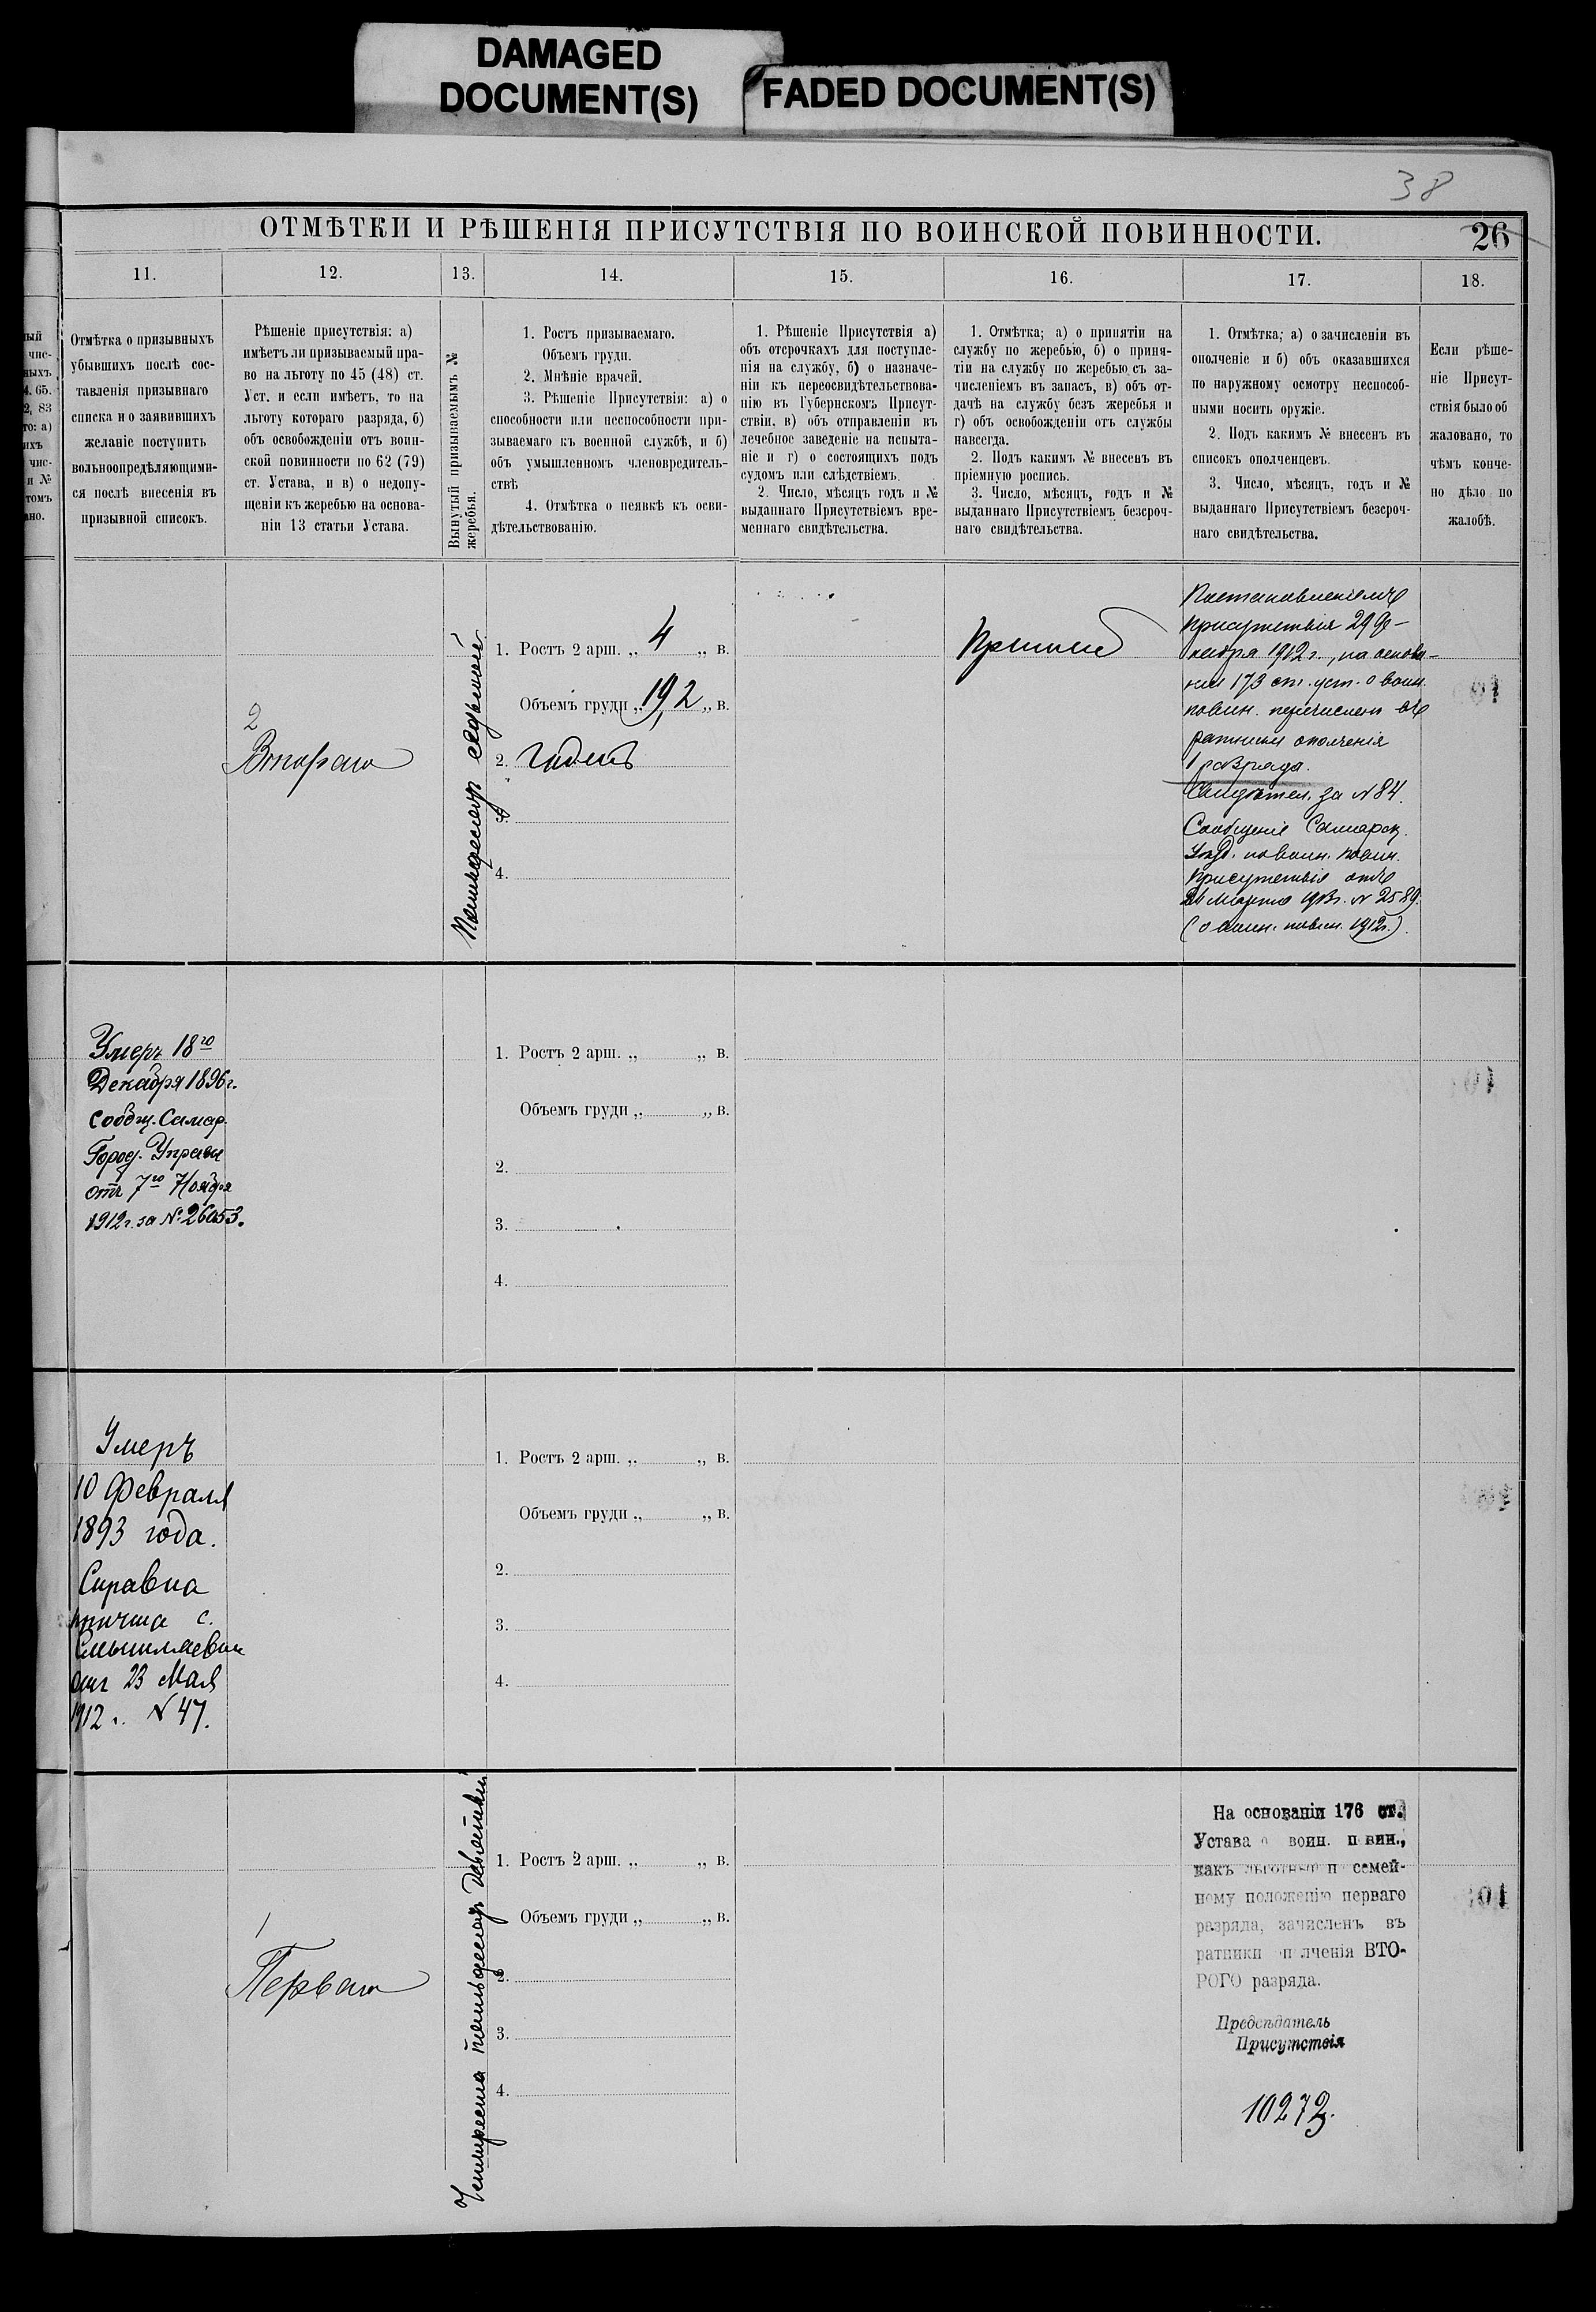 DAMAGED
DOCUMENT(S)
FADED DOCUMENT(S)
38
ОТМѢТКИ И РѢШЕНІЯ ПРИСУТСТВІЯ ПО ВОИНСКОЙ ПОВИННОСТИ.
26
11.
12.
13.
14.
15.
16.
17.
18.
Отмѣтка о призывныхъ
убывшихъ послѣ сос-
тавленія призывнаго
списка и о заявившихъ
желаніе поступить
вольноопредѣляющими-
ся послѣ внесенія въ
призывной списокъ.
Рѣшеніе присутствія: а)
имѣетъ ли призываемый пра-
во на льготу по 45 (48) ст.
Уст. и если имѣетъ, то на
льготу котораго разряда, б)
объ освобожденіи отъ воин-
ской повинности по 62 (79)
ст. Устава, и в) о недопу-
щеніи къ жеребью на основа-
ніи 13 статьи Устава.
Вынутый призываемымъ №
жеребья.
1. Ростъ призываемаго.
Объемъ груди.
2. Мнѣніе врачей.
3. Рѣшеніе Присутствія: а) о
способности или неспособности при-
зываемаго къ военной службѣ, и б)
объ умышленномъ членовредитель-
ствѣ
4. Отмѣтка о неявкѣ къ осви-
дѣтельствованію.
1. Рѣшеніе Присутствія а)
объ отсрочкахъ для поступле-
нія на службу, б) о назначе-
ніи къ переосвидѣтельствова-
нію въ Губернскомъ Присут-
ствіи, в) объ отправленіи въ
лечебное заведеніе на испыта-
ніе и г) о состоящихъ подъ
судомъ или слѣдствіемъ.
2. Число, мѣсяцъ годъ и №
выданнаго Присутствіемъ вре-
меннаго свидѣтельства.
1. Отмѣтка; а) о принятіи на
службу по жеребью, б) о приня-
тіи на службу по жеребью съ за-
численіемъ въ запасъ, в) объ от-
дачѣ на службу безъ жеребья и
г) объ освобожденіи отъ службы
навсегда.
2. Подъ какимъ № внесенъ въ
пріемную роспись.
3. Число, мѣсяцъ, годъ и №
выданнаго Присутствіемъ безсроч-
наго свидѣтельства.
1. Отмѣтка; а) о зачисленіи въ
ополченіе и б) объ оказавшихся
по наружному осмотру неспособ-
ными носить оружіе.
2. Подъ какимъ № внесенъ въ
списокъ ополченцевъ.
3. Число, мѣсяцъ, годъ и №
выданнаго Присутствіемъ безсроч-
наго свидѣтельства.
Если рѣше-
ніе Присут-
ствія было об
жаловано, то
чѣмъ конче-
но дѣло по
жалобѣ.
2
Втораго
Пятьдесятъ седьмой
1. Ростъ 2 арш. „ 4 „ в.
Объемъ груди „ 19,2 „ в.
2. Годенъ
3.
4.
Принятъ
Постановленіемъ
присутствія 29 Ок-
тября 1912 г., на основа-
ніи 173 ст. уст. о воин.
повин. перечисленъ въ
ратники ополченія
1 разряда.
Свидѣтел. за N 84.
Сообщеніе Самарск.
Уѣзд. по воин. повин.
присутствія отъ
21 Марта 1913 г. N 2589.
(о воин. повин. 1912 г.).
Умеръ 18го
Декабря 1896 г.
сообщ. Самар.
Город. Управы
отъ 7го Ноября
1912 г. за № 26053.
1. Ростъ 2 арш. „ „ в.
Объемъ груди „ „ в.
2.
3.
4.
Умеръ
10 Февраля
1893 года.
Справка
причта с.
Смышляевки
отъ 23 Мая
1912 г. N 47.
1. Ростъ 2 арш. „ „ в.
Объемъ груди „ „ в.
2.
3.
4.
1
Перваго
Четыреста пятьдесятъ девятый
1. Ростъ 2 арш. „ „ в.
Объемъ груди „ „ в.
2.
3.
4.
На основаніи 176 ст.
Устава о воин. повин.,
какъ льготный по семей-
ному положенію перваго
разряда, зачисленъ въ
ратники ополченія ВТО-
РОГО разряда.
Предсѣдатель
Присутствія
10272.